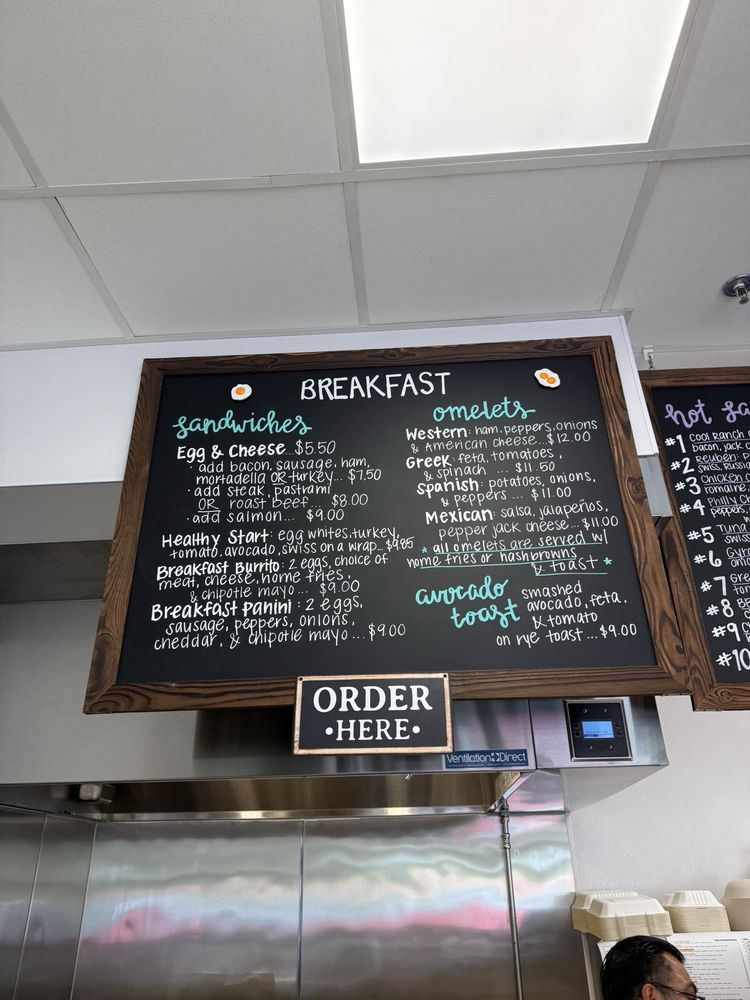 BREAKFAST
sandwiches
Egg & Cheese...$5.50
· add bacon, sausage, ham,
mortadella OR turkey... $7.50
· add steak, pastrami
OR roast beef... $8.00
· add salmon... $9.00
Healthy Start: egg whites, turkey,
tomato, avocado, swiss on a wrap...$9.85
Breakfast Burrito: 2 eggs, choice of
meat, cheese, home fries,
& chipotle mayo... $9.00
Breakfast Panini: 2 eggs,
sausage, peppers, onions,
cheddar, & chipotle mayo... $9.00
omelets
Western: ham, peppers, onions
& American cheese...$12.00
Greek: feta, tomatoes,
& spinach ... $11.50
Spanish: potatoes, onions,
& peppers ... $11.00
Mexican: salsa, jalapeños,
pepper jack cheese...$11.00
* all omelets are served w/
home fries or hashbrowns
& toast *
avocado
toast
smashed
avocado, feta,
& tomato
on rye toast...$9.00
ORDER
·HERE·
Ventilation Direct
hot
#1 Cool Ranch
bacon, jack
#2 Reuben:
swiss, Russi
#3 Chicken
romaine
#4 Philly
peppers,
#5 Tuna
swiss
#6 Gyro
#7 Gree
#8
#9
#10